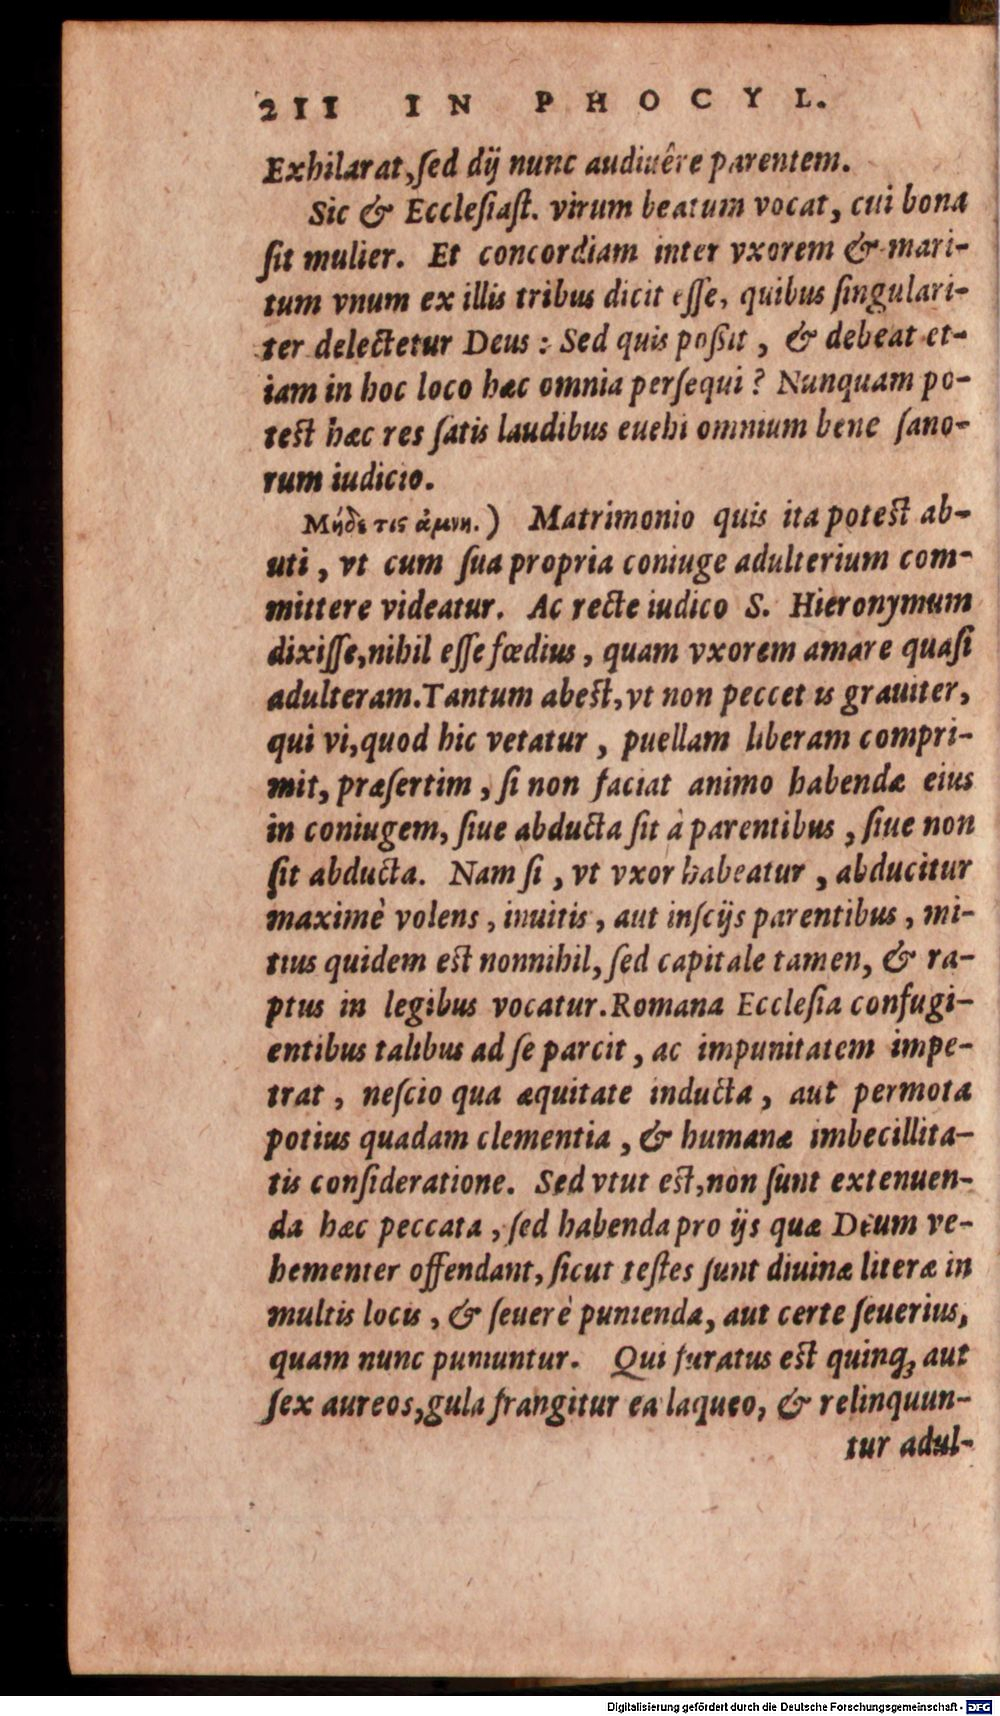 211 IN PHOCYL.
Exhilarat,ſed dij nunc audiuêre parentem.
Sic & Eccleſiaſt. virum beatum vocat, cui bona
ſit mulier. Et concordiam inter vxorem & mari-
tum vnum ex illis tribus dicit eſſe, quibus ſingulari-
ter delectetur Deus : Sed quis poßit, & debeat et-
iam in hoc loco hæc omnia perſequi ? Nunquam po-
test hæc res ſatis laudibus euehi omnium bene ſano-
rum iudicio.
Μηδέ τις ἀμινη.) Matrimonio quis ita potest ab-
uti, vt cum ſua propria coniuge adulterium com-
mittere videatur. Ac recte iudico S. Hieronymum
dixiſſe,nihil eſſe fœdius, quam vxorem amare quaſi
adulteram.Tantum abest,vt non peccet is grauiter,
qui vi,quod hic vetatur, puellam liberam compri-
mit, præſertim, ſi non faciat animo habendæ eius
in coniugem, ſiue abducta ſit à parentibus, ſiue non
ſit abducta. Nam ſi, vt vxor habeatur, abducitur
maximè volens, inuitis, aut inſcijs parentibus, mi-
tius quidem est nonnihil, ſed capitale tamen, & ra-
ptus in legibus vocatur.Romana Eccleſia confugi-
entibus talibus ad ſe parcit, ac impunitatem impe-
trat, neſcio qua æquitate inducta, aut permota
potius quadam clementia, & humanæ imbecillita-
tis conſideratione. Sed vtut est,non ſunt extenuen-
da hæc peccata, ſed habenda pro ijs quæ Deum ve-
hementer offendant, ſicut teſtes ſunt diuinæ literæ in
multis locis, & ſeuerè punienda, aut certe ſeuerius,
quam nunc puniuntur. Qui furatus est quinq́ꝫ aut
ſex aureos,gula frangitur ea laqueo, & relinquun-
tur adul-
Digitalisierung gefördert durch die Deutsche Forschungsgemeinschaft - DFG